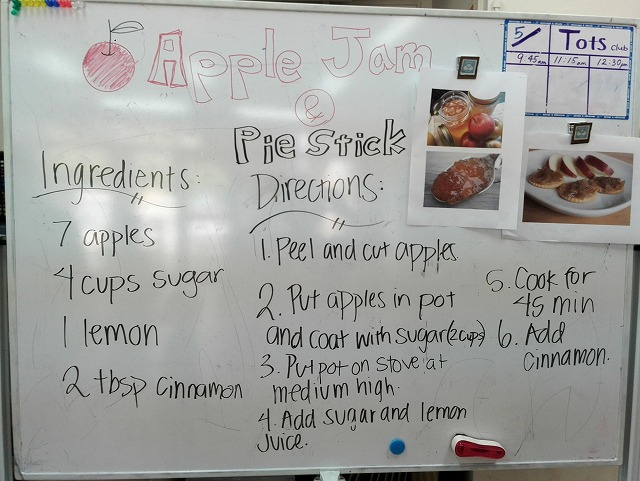 Apple Jam
&
Pie Stick
Ingredients:
7 apples
4 cups sugar
1 lemon
2 tbsp cinnamon
Directions:
1. Peel and cut apples
2. Put apples in pot
and coat with sugar (2cups)
3. Put pot on stove at
medium high.
4. Add sugar and lemon
juice.
5. Cook for
45 min
6. Add
cinnamon.
5/ Tots Club
9:45am 11:15am 12:30pm